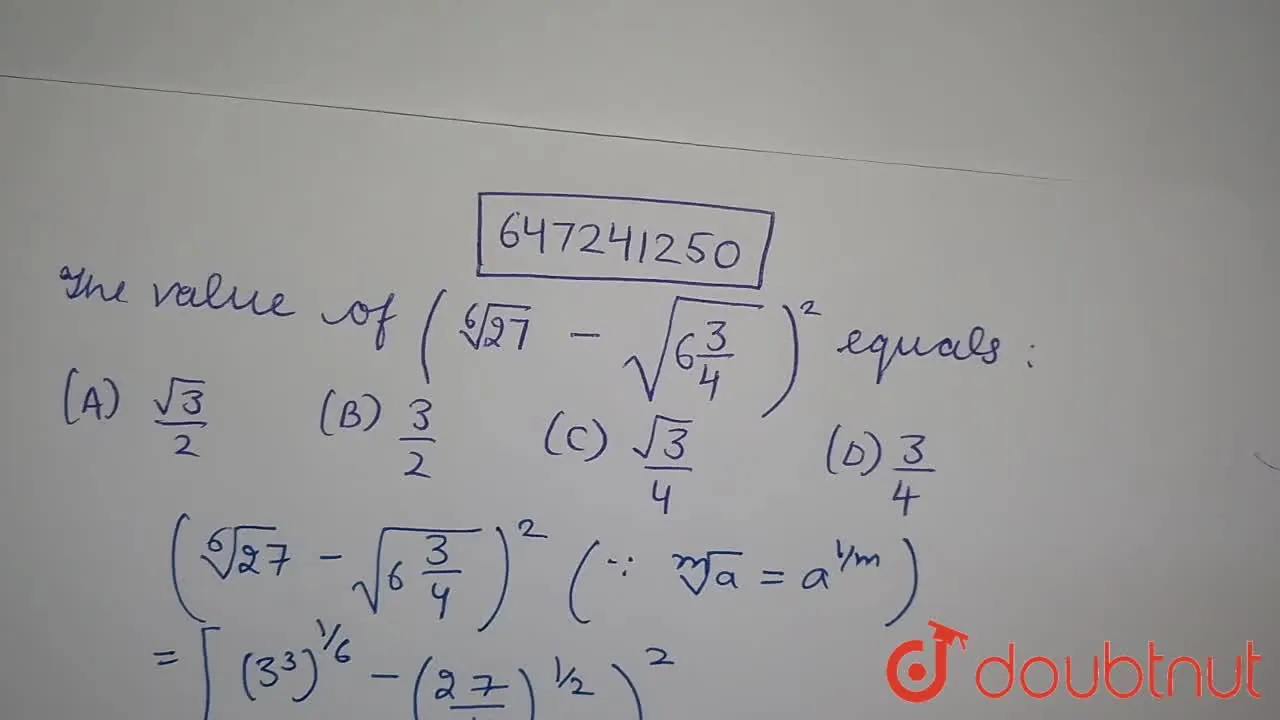 647241250
The value of ( ⁶√27 - √(6 3/4) )² equals :
(A) √3/2 (B) 3/2 (C) √3/4 (D) 3/4
( ⁶√27 - √(6 3/4) )² ( ∵ ᵐ√a = a^(1/m) )
= [ (3³)^(1/6) - (27/ )^(1/2) )²
doubtnut